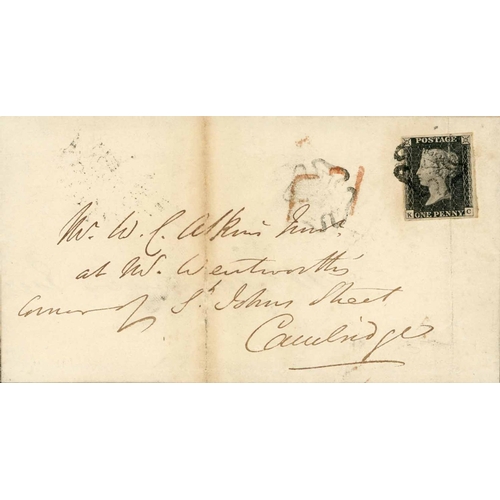 POSTAGE
ONE PENNY
Mr. W. C. Atkins Junr.
at Mr. Wentworth's
corner of St. Johns Street
Cambridge